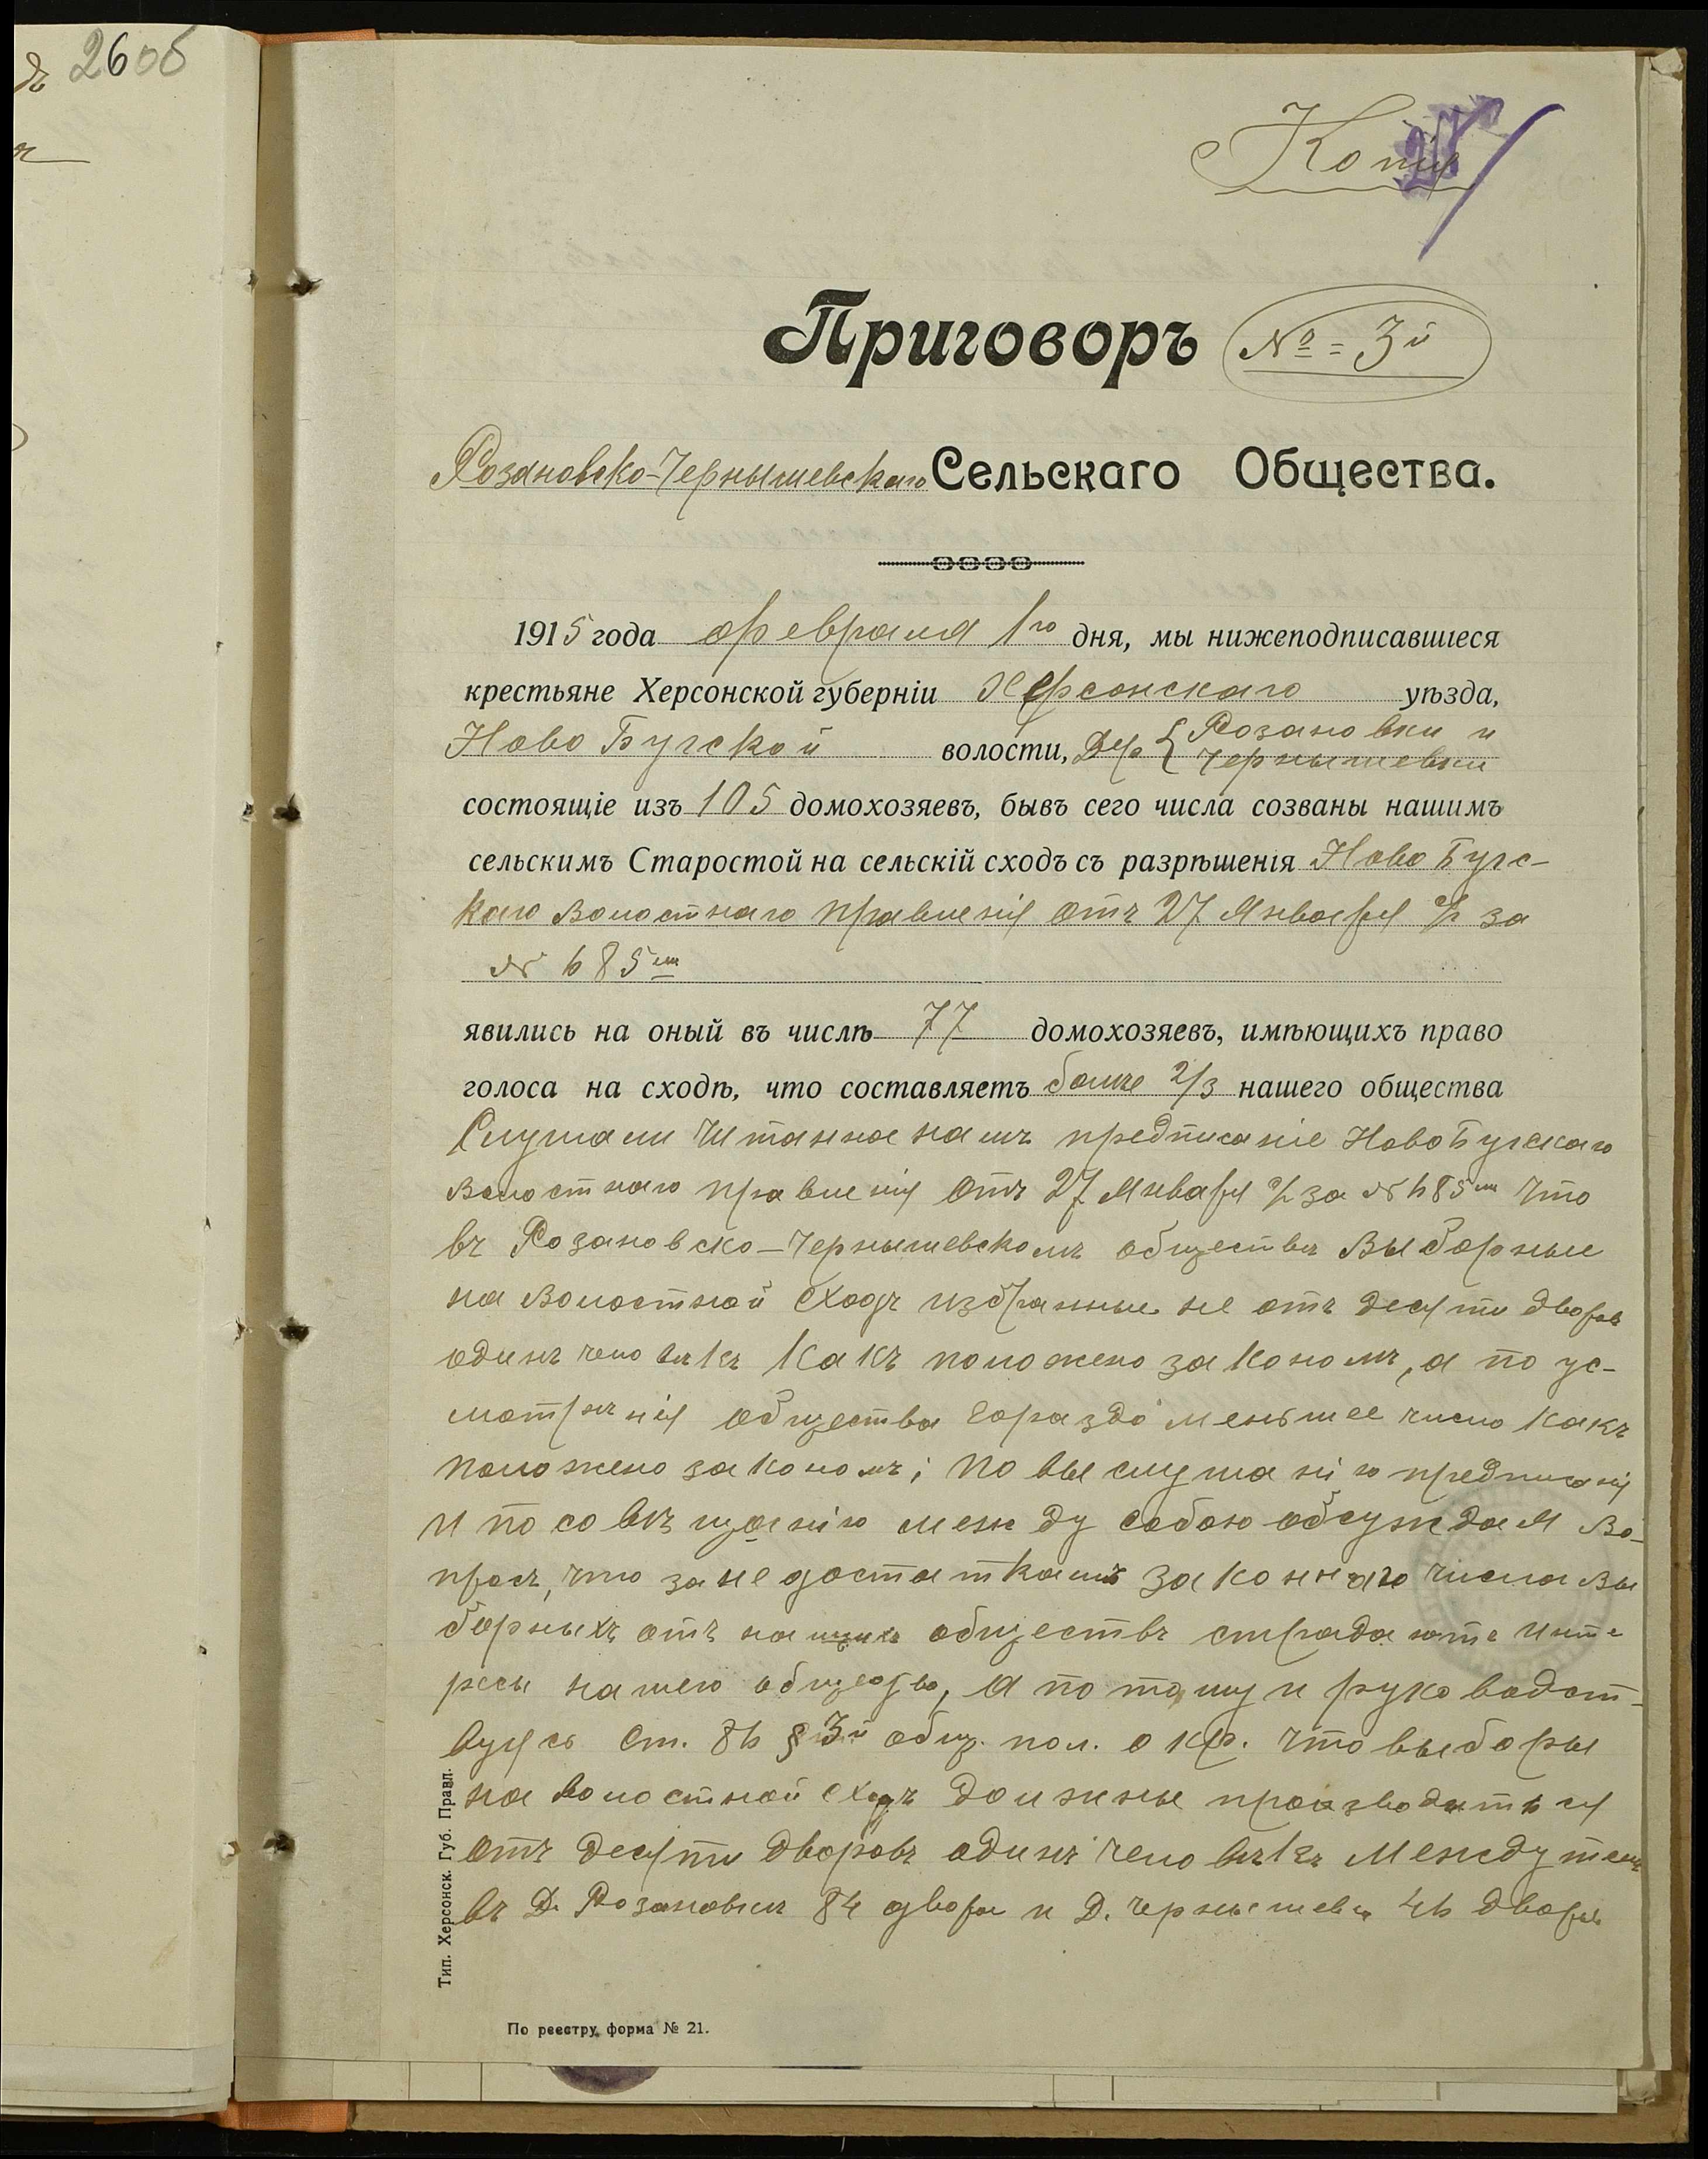 2606
Копія
27
Приговоръ № = 3й
Розановско-Чернышевскаго Сельскаго Общества.
1915 года февраля 1го дня, мы нижеподписавшиеся
крестьяне Херсонской губерніи Херсонскаго уѣзда,
Ново Бугской волости, Дер { Розановки и
Чернышевки
состоящіе изъ 105 домохозяевъ, бывъ сего числа созваны нашимъ
сельскимъ Старостой на сельскій сходъ съ разрѣшенія Ново Бугс-
каго Волостнаго правленія отъ 27 Января с/г за
№ 685мъ
явились на оный въ числѣ 77 домохозяевъ, имѣющихъ право
голоса на сходѣ, что составляетъ болѣе 2/3 нашего общества
Слушали читанное намъ предписаніе Ново Бугскаго
Волостнаго правленія отъ 27 Января с/г за № 685мъ что
въ Розановско-Чернышевскомъ обществѣ Выборные
на Волостной Сходъ избранные не отъ десяти дворовъ
одинъ человѣкъ какъ положено закономъ, а по ус-
мотрѣнія общества гораздо меньшее число какъ
положено закономъ; по выслушанію предписанія
и по совѣщанію между собою обсуждая Во-
просъ, что за недостаткомъ законнаго числа Вы
борныхъ отъ нашихъ обществъ страдаютъ инте
ресы нашего общества, а потому и руководст-
вуясь ст. 86 § 3й общ. пол. о кр. что выборы
на волостной сходъ должны производиться
отъ десяти дворовъ одинъ человѣкъ Между тѣмъ
въ Д. Розановкѣ 84 двора и Д. Чернышевкѣ 46 дворовъ
Тип. Херсонск. Губ. Правл.
По реестру форма № 21.